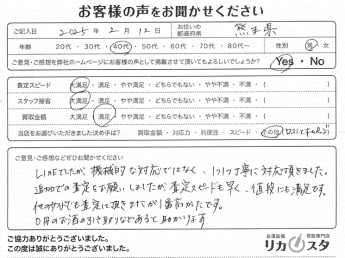 お客様の声をお聞かせください
ご記入日 2025年2月12日 お住いの都道府県 熊本県
年齢 20代・30代・40代・50代・60代・70代・80代〜 性別 男・女
ご意見・ご感想を弊社ホームページにお客様の声として掲載させて頂いてもよろしいでしょうか? Yes・No
査定スピード 大満足・満足・やや満足・どちらでもない・やや不満・不満・( )
スタッフ接客 大満足・満足・やや満足・どちらでもない・やや不満・不満・( )
買取金額 大満足・満足・やや満足・どちらでもない・やや不満・不満・( )
当店をお選びいただきました決め手は? 買取金額・対応力・利便性・スピード・その他(
ご意見・ご感想などぜひお聞かせください
LINEでしたが機械的な対応ではなく、1つ1つ丁寧に対応頂きました。
追加での査定をお願いしましたが査定スピードも早く、値段にも満足です。
他の方でも査定に頂きましたが1番高かたです。
0円のお酒の引き取りなどあると助かります
ご協力ありがとうございました。
この度は誠にありがとうございました。
お酒高価買取専門店
リカスタ